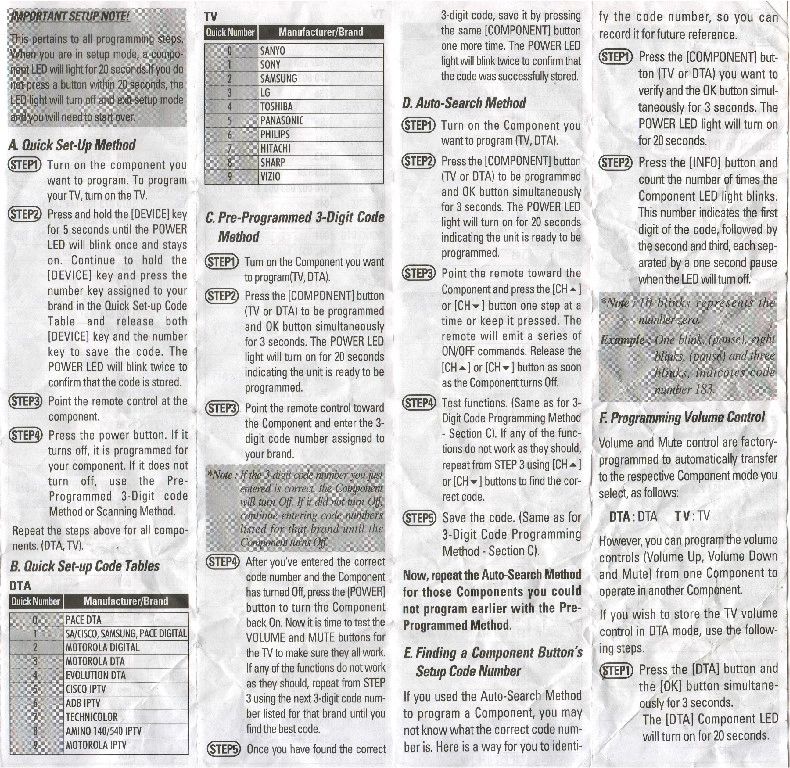 IMPORTANT SETUP NOTE!
This pertains to all programming steps.
When you are in setup mode, a compo-
nent LED will light for 20 seconds. If you do
not press a button within 20 seconds, the
LED light will turn off and exit setup mode
and you will need to start over.
A. Quick Set-Up Method
STEP1 Turn on the component you
want to program. To program
your TV, turn on the TV.
STEP2 Press and hold the [DEVICE] key
for 5 seconds until the POWER
LED will blink once and stays
on. Continue to hold the
[DEVICE] key and press the
number key assigned to your
brand in the Quick Set-up Code
Table and release both
[DEVICE] key and the number
key to save the code. The
POWER LED will blink twice to
confirm that the code is stored.
STEP3 Point the remote control at the
component.
STEP4 Press the power button. If it
turns off, it is programmed for
your component. If it does not
turn off, use the Pre-
Programmed 3-Digit code
Method or Scanning Method.
Repeat the steps above for all compo-
nents. (DTA, TV).
B. Quick Set-up Code Tables
DTA
Quick Number Manufacturer/Brand
0 PACE DTA
1 SA/CISCO, SAMSUNG, PACE DIGITAL
2 MOTOROLA DIGITAL
3 MOTOROLA DTA
4 EVOLUTION DTA
5 CISCO IPTV
6 ADB IPTV
7 TECHNICOLOR
8 AMINO 140/540 IPTV
9 MOTOROLA IPTV
TV
Quick Number Manufacturer/Brand
0 SANYO
1 SONY
2 SAMSUNG
3 LG
4 TOSHIBA
5 PANASONIC
6 PHILIPS
7 HITACHI
8 SHARP
9 VIZIO
C. Pre-Programmed 3-Digit Code
Method
STEP1 Turn on the Component you want
to program(TV, DTA).
STEP2 Press the [COMPONENT] button
(TV or DTA) to be programmed
and OK button simultaneously
for 3 seconds. The POWER LED
light will turn on for 20 seconds
indicating the unit is ready to be
programmed.
STEP3 Point the remote control toward
the Component and enter the 3-
digit code number assigned to
your brand.
*Note : If the 3-digit code number you just
entered is correct, the Component
will turn Off. If it did not turn Off,
continue entering code numbers
listed for that brand until the
Component turns Off.
STEP4 After you've entered the correct
code number and the Component
has turned Off, press the [POWER]
button to turn the Component
back On. Now it is time to test the
VOLUME and MUTE buttons for
the TV to make sure they all work.
If any of the functions do not work
as they should, repeat from STEP
3 using the next 3-digit code num-
ber listed for that brand until you
find the best code.
STEP5 Once you have found the correct
3-digit code, save it by pressing
the same [COMPONENT] button
one more time. The POWER LED
light will blink twice to confirm that
the code was successfully stored.
D. Auto-Search Method
STEP1 Turn on the Component you
want to program (TV, DTA).
STEP2 Press the [COMPONENT] button
(TV or DTA) to be programmed
and OK button simultaneously
for 3 seconds. The POWER LED
light will turn on for 20 seconds
indicating the unit is ready to be
programmed.
STEP3 Point the remote toward the
Component and press the [CH ▲]
or [CH ▼] button one step at a
time or keep it pressed. The
remote will emit a series of
ON/OFF commands. Release the
[CH ▲] or [CH ▼] button as soon
as the Component turns Off.
STEP4 Test functions. (Same as for 3-
Digit Code Programming Method
- Section C). If any of the func-
tions do not work as they should,
repeat from STEP 3 using [CH ▲]
or [CH ▼] buttons to find the cor-
rect code.
STEP5 Save the code. (Same as for
3-Digit Code Programming
Method - Section C).
Now, repeat the Auto-Search Method
for those Components you could
not program earlier with the Pre-
Programmed Method.
E. Finding a Component Button's
Setup Code Number
If you used the Auto-Search Method
to program a Component, you may
not know what the correct code num-
ber is. Here is a way for you to identi-
fy the code number, so you can
record it for future reference.
STEP1 Press the [COMPONENT] but-
ton (TV or DTA) you want to
verify and the OK button simul-
taneously for 3 seconds. The
POWER LED light will turn on
for 20 seconds.
STEP2 Press the [INFO] button and
count the number of times the
Component LED light blinks.
This number indicates the first
digit of the code, followed by
the second and third, each sep-
arated by a one second pause
when the LED will turn off.
*Note : 10 blinks represents the
number zero.
Example : One blink, (pause), eight
blinks, (pause) and three
blinks, indicates code
number 183.
F. Programming Volume Control
Volume and Mute control are factory-
programmed to automatically transfer
to the respective Component mode you
select, as follows:
DTA : DTA TV : TV
However, you can program the volume
controls (Volume Up, Volume Down
and Mute) from one Component to
operate in another Component.
If you wish to store the TV volume
control in DTA mode, use the follow-
ing steps.
STEP1 Press the [DTA] button and
the [OK] button simultane-
ously for 3 seconds.
The [DTA] Component LED
will turn on for 20 seconds.